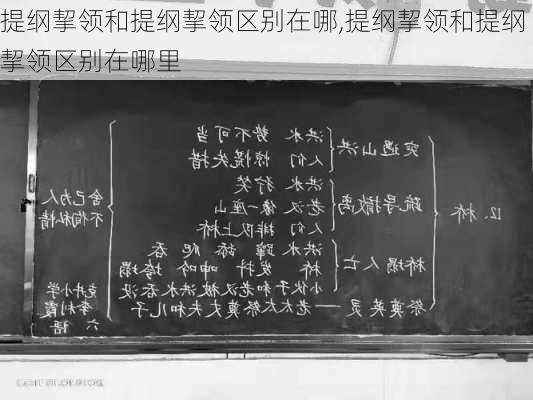 提纲挈领和提纲挈领区别在哪,提纲挈领和提纲
挈领区别在哪里
12. 桥
突遇山洪
洪水 势不可当
人们 惊慌失措
疏导撤离
洪水 狞笑
老汉 像一座山
人们 排队上桥
桥塌人亡
洪水 蹿 舔 爬 吞
桥 发抖 呻吟 垮塌
小伙子和老汉被洪水吞没
祭奠英灵——老太太祭奠丈夫和儿子
舍己为人
不徇私情
克井小学
李利霞
六 语